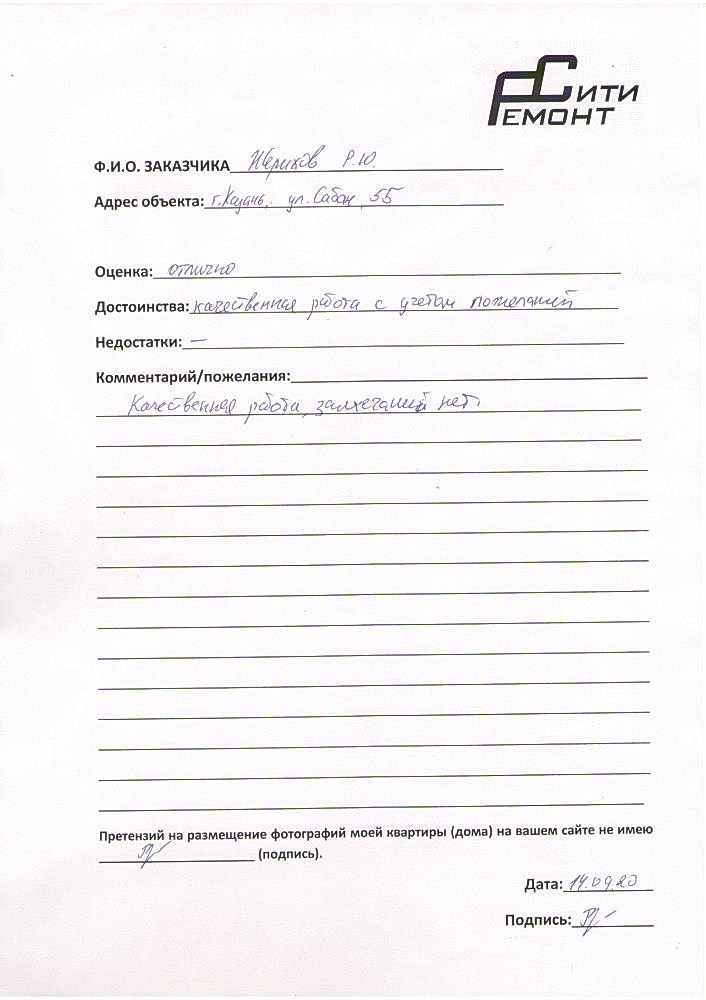 Сити
Ремонт
Ф.И.О. ЗАКАЗЧИКА Жерихов Р.Ю.
Адрес объекта: г. Казань, ул. Сабан, 55
Оценка: отлично
Достоинства: качественная работа с учетом пожеланий
Недостатки: —
Комментарий/пожелания:
Качественная работа, замечаний нет.
Претензий на размещение фотографий моей квартиры (дома) на вашем сайте не имею
(подпись).
Дата: 14.09.20
Подпись: